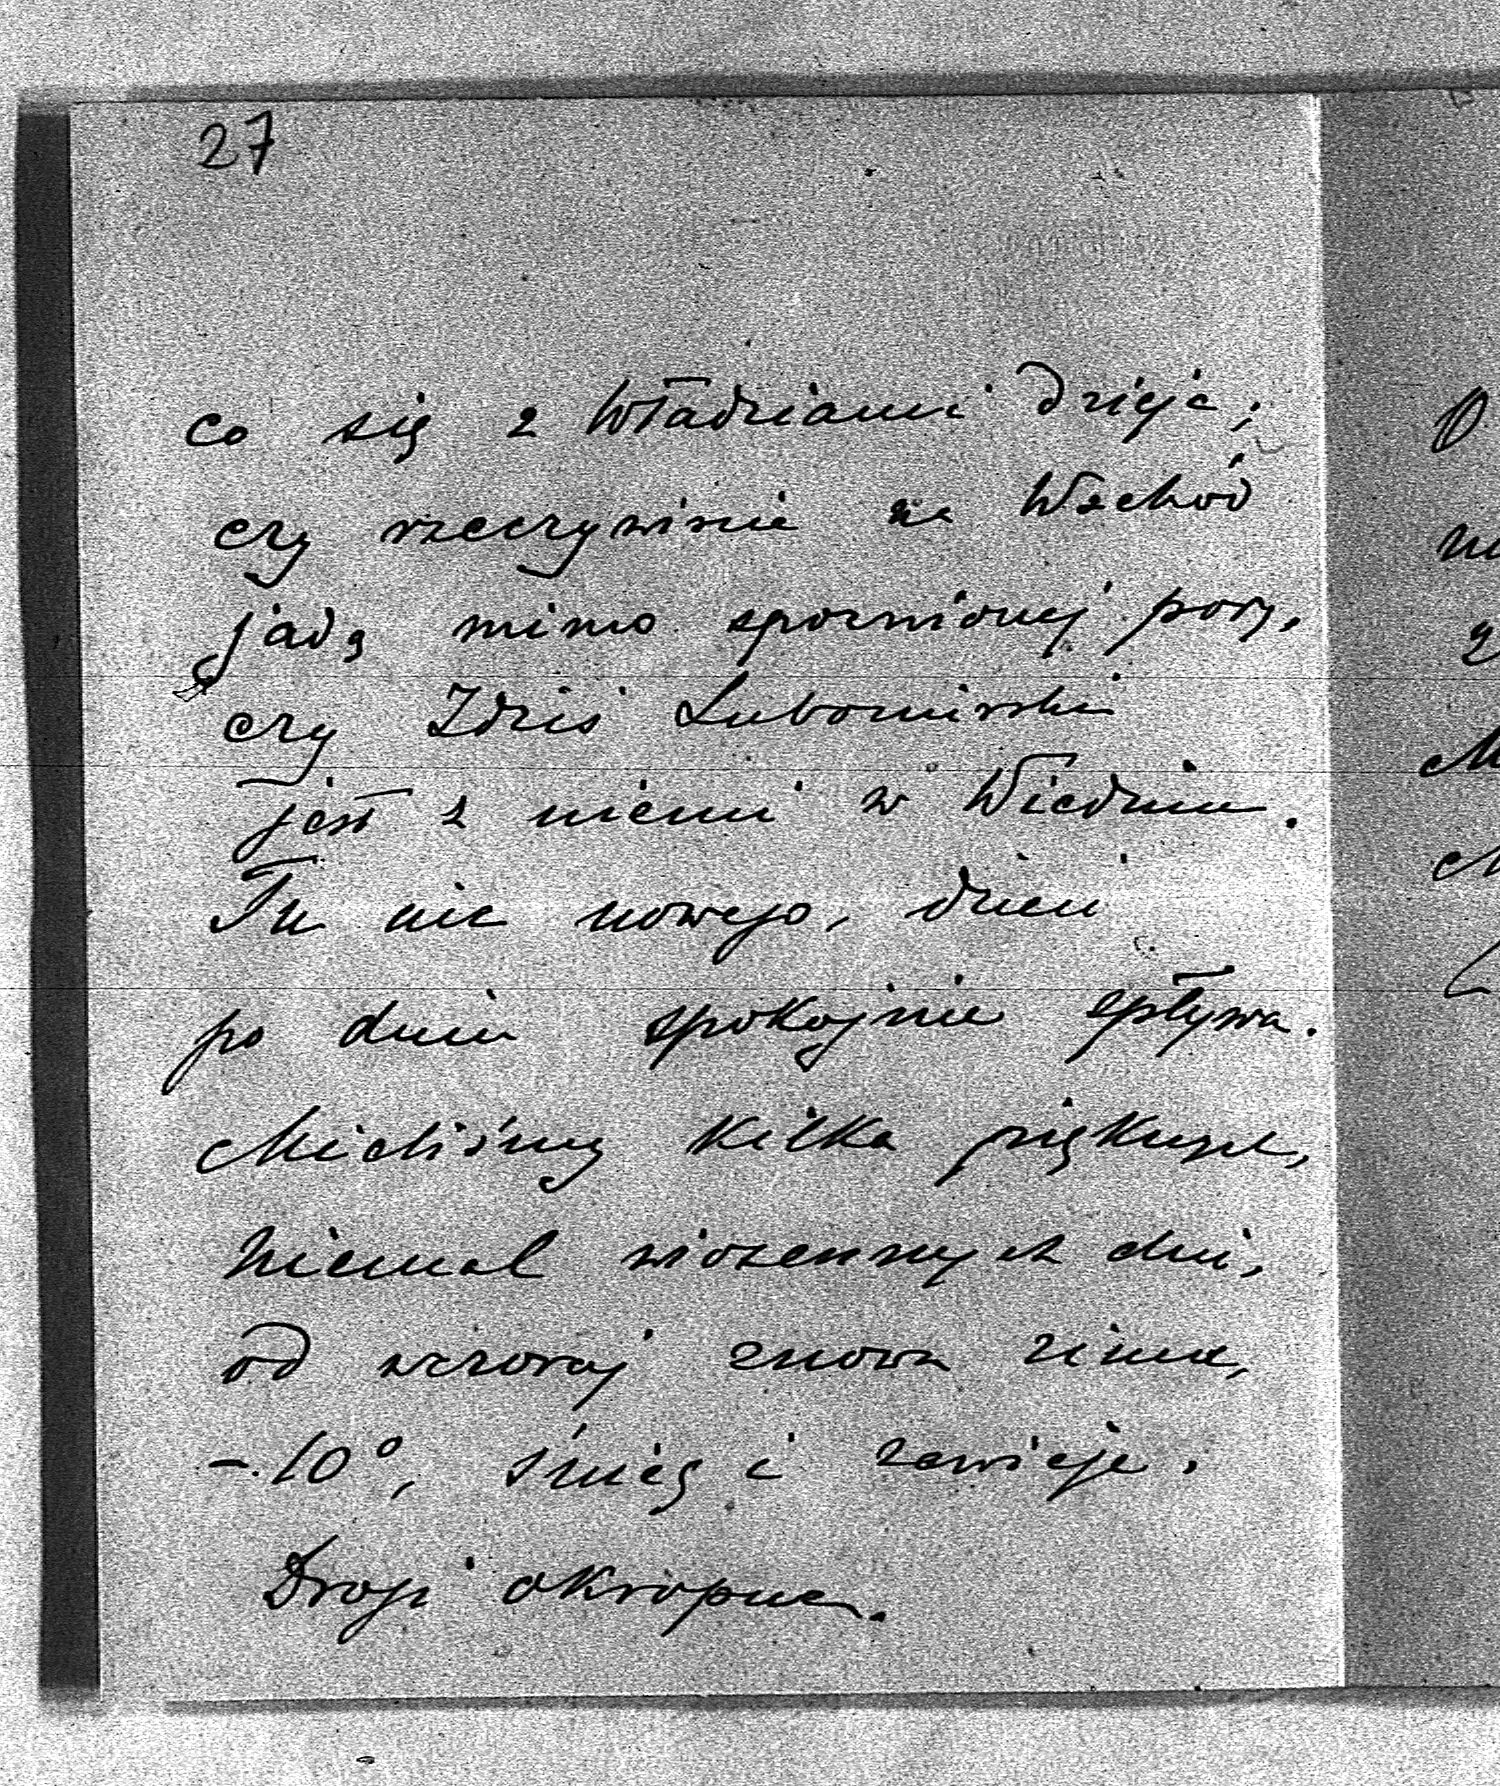 27
co się z Władziami dzieje;
czy rzeczywiście na Wschód
jadą mimo spóźnionej pory,
czy Zdziś Lubomirski
jest z niemi w Wiedniu.
Tu nic nowego, dzień
po dniu spokojnie spływa.
Mieliśmy kilka pięknych,
niemal wiosennych dni,
od wczoraj znowu zima,
-10°, śnieg i zawieje.
Drogi okropne.